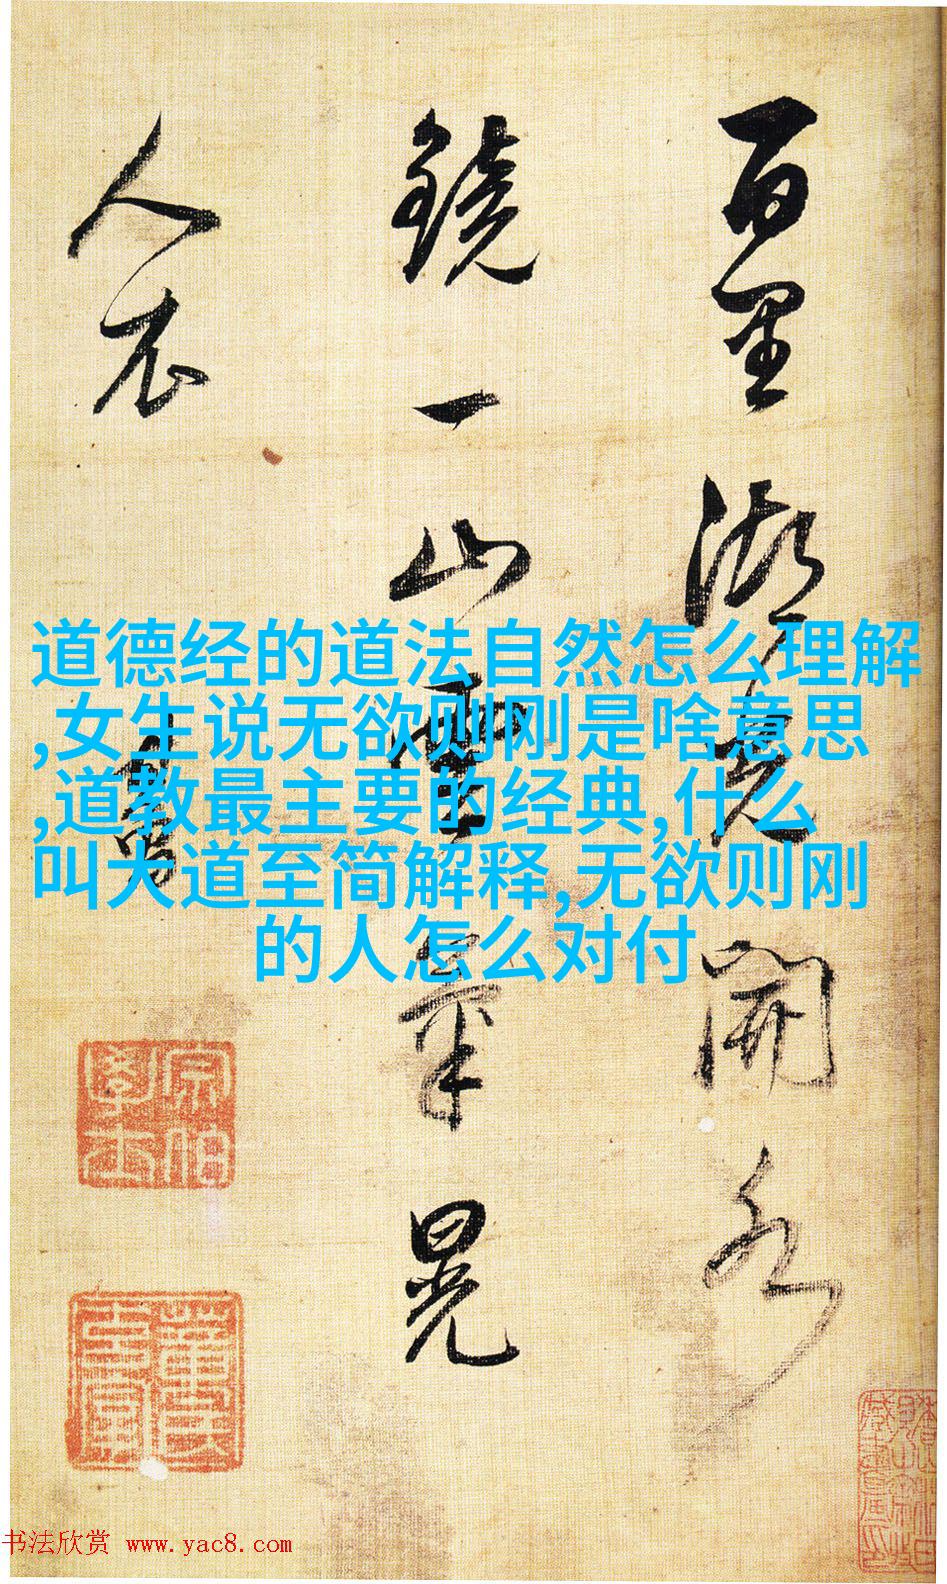 百里湖光開水
鏡一山雲氣晃
人衣
其昌
宗伯學士
董氏玄宰
道德经的道法自然怎么理解
,女生说无欲则刚是啥意思
,道教最主要的经典,什么
叫大道至简解释,无欲则刚
的人怎么对付
书法欣赏 www.yac8.com